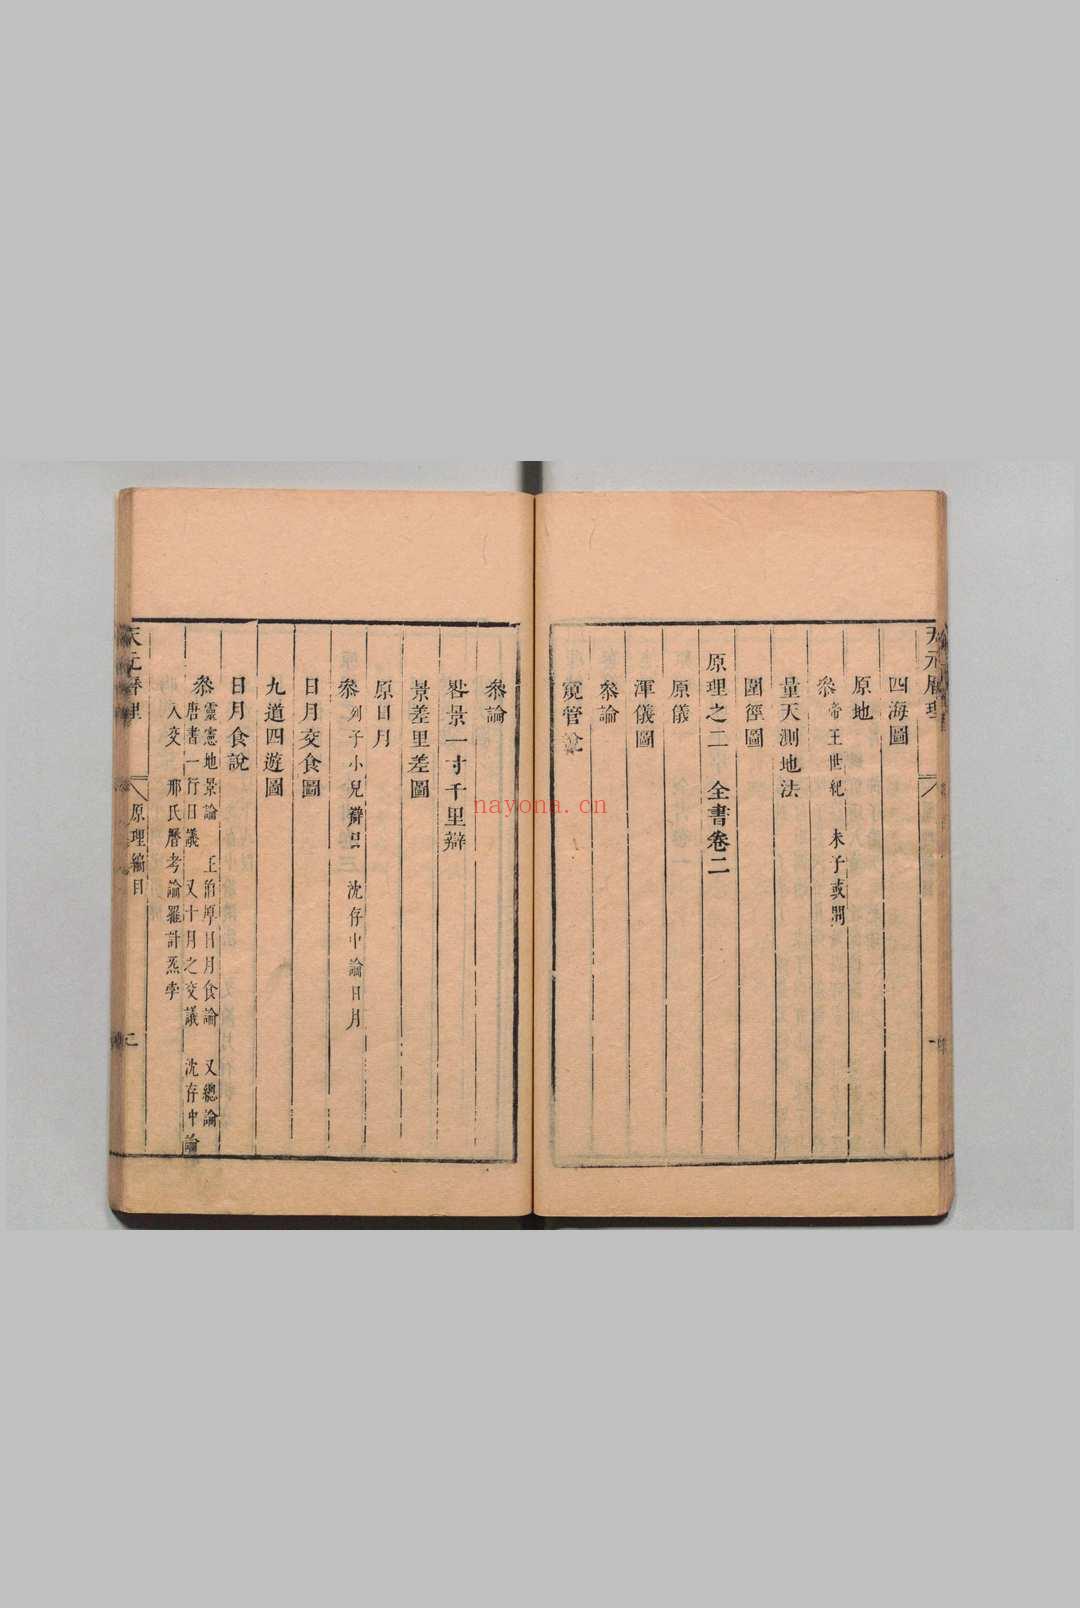 四海圖
原地
參帝王世紀 朱子或問
量天測地法
圍徑圖
原理之二 全書卷二
原儀
渾儀圖
參論
窺管說
參論
晷景一寸千里辯
景差里差圖
原日月
參列子小兒辯日 沈存中論日月
日月交食圖
九道四遊圖
日月食說
參靈憲地景論 王冶厚日月食論 又總論
唐書一行日議 又十月之交議 沈存中論
入交 邢氏曆考論羅計炁孛
天元曆理
原理編目
二
nayona.cn